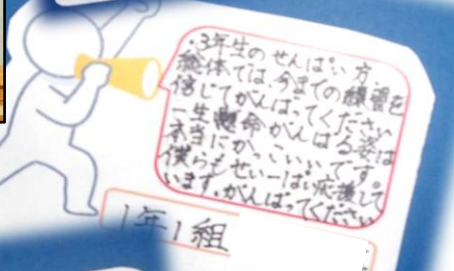 ・3年生のせんぱい方
総体では、今までの練習を
信じてがんばってください
一生懸命がんばる姿は
本当にかっこいいです。
僕らもせいいっぱい応援して
います。がんばってください
1年1組